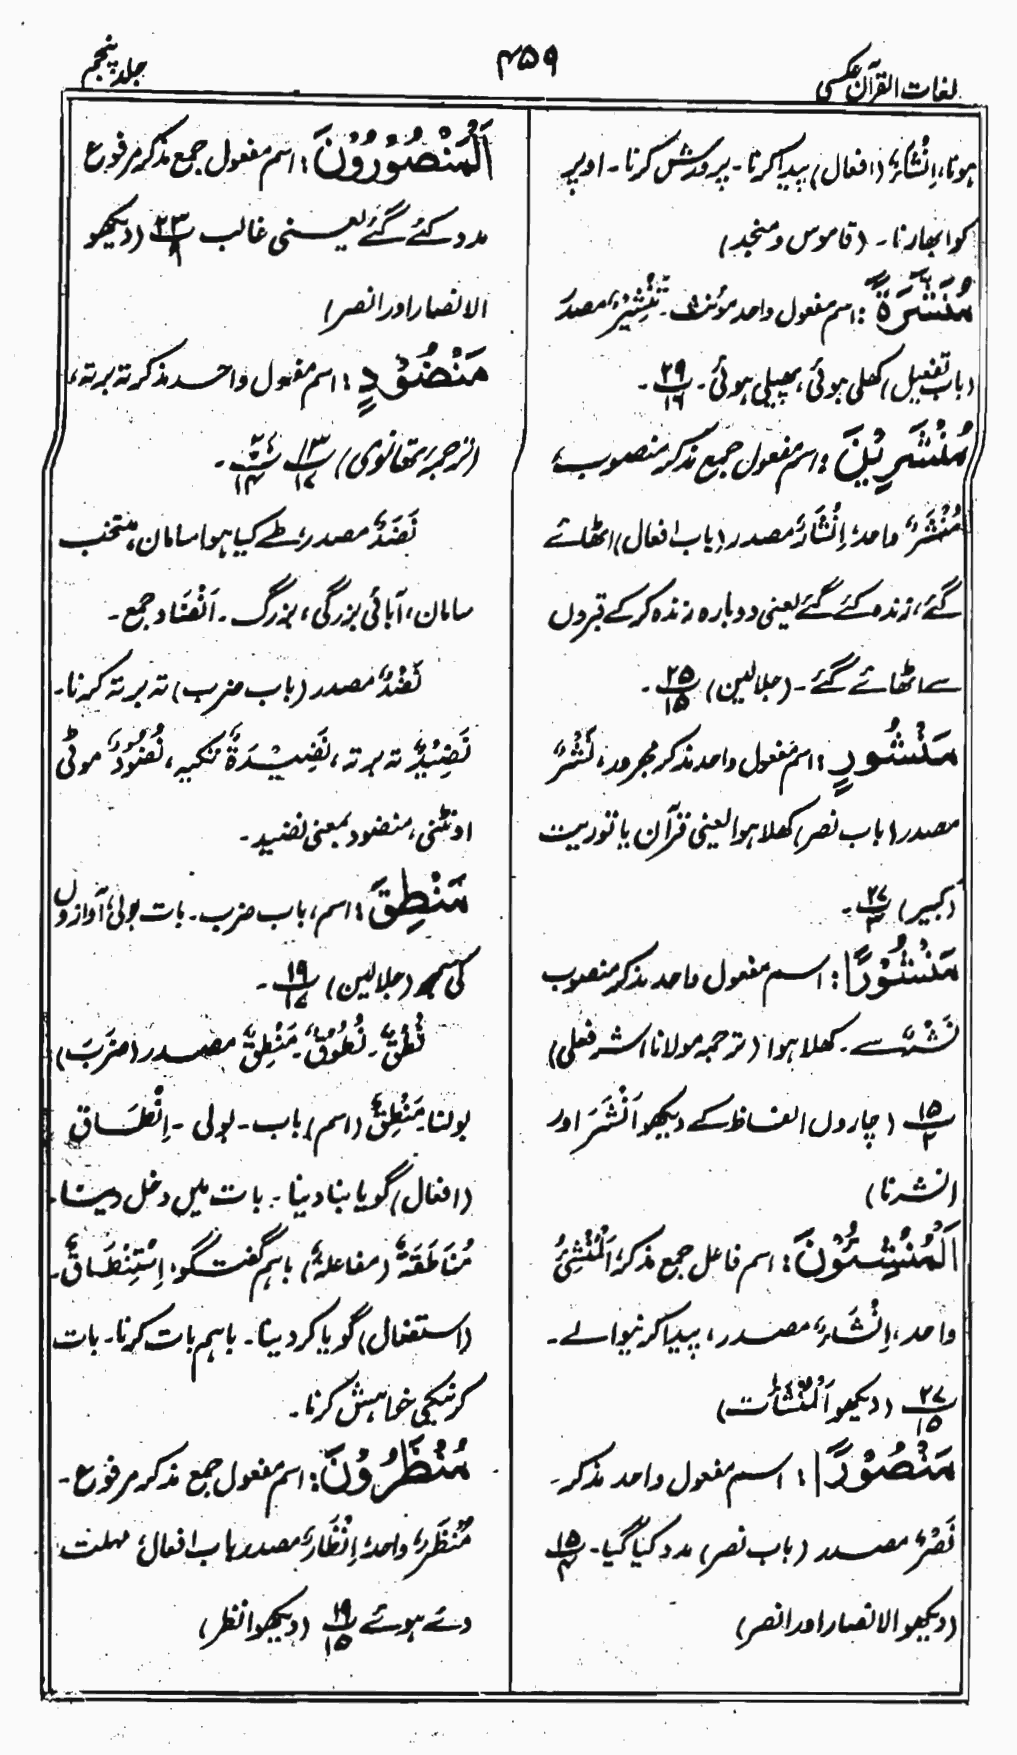 لغات القرآن عکسی
۴۵۹
جلد پنجم
ہونا، اِنْشَارٌ (افعال) پیدا کرنا۔ پرورش کرنا۔ اوپر
کو ابھارنا۔ (قاموس و منجد)
مُنَشَّرَةً: اسم مفعول واحد مؤنث۔ تَنْشِیْرٌ مصدر
(باب تفعیل) کھلی ہوئی، پھیلی ہوئی۔ ۲۹/۱۶۔
مُنْشَرِیْنَ: اسم مفعول جمع مذکر منصوب،
مُنْشَرٌ واحد اِنْشَارٌ مصدر (باب افعال) اٹھائے
گئے، زندہ کئے گئے یعنی دوبارہ زندہ کرکے قبروں
سے اٹھائے گئے۔ (جلالین) ۲۵/۱۵۔
مَنْشُورٍ: اسم مفعول واحد مذکر مجرور، نَشْرٌ
مصدر (باب نصر) کھلا ہوا یعنی قرآن یا توریت
(کبیر) ۲۷/۳۔
مَنْشُوْرًا: اسم مفعول واحد مذکر منصوب
نَشْرٌ سے۔ کھلا ہوا (ترجمہ مولانا اشرفعلی)
۱۵/۲ (چاروں الفاظ کے دیکھو اَنْشَرَ اور
انشرنا)
اَلْمُنْشِئُوْنَ: اسم فاعل جمع مذکر اَلْمُنْشِئُ
واحد، اِنْشَاءٌ مصدر، پیدا کرنیوالے۔
۲۷/۱۵ (دیکھو اَلْمُنْشَاٰت)
مَنْصُوْرًا: اسم مفعول واحد مذکر۔
نَصْرٌ مصدر (باب نصر) مدد کیا گیا۔ ۱۵/۴
(دیکھو الانصار اور انصر)
اَلْمَنْصُوْرُوْنَ: اسم مفعول جمع مذکر مرفوع
مدد کئے گئے یعنی غالب ۲۳/۸ (دیکھو
الانصار اور انصر)
مَنْضُوْدٍ: اسم مفعول واحد مذکر تہ برتہ،
(ترجمہ تھانوی) ۱۲/۱۷ ۲۷/۱۴۔
نَضَدٌ مصدر، طے کیا ہوا سامان، منتخب
سامان، آبائی بزرگی، بزرگ۔ اَنْضَاد جمع۔
نَضْدٌ مصدر (باب ضرب) تہ برتہ کرنا۔
نَضِیْدٌ تہ برتہ، نَضِیْدَةٌ تکیہ، نَضُوْدٌ موٹی
اونٹنی، منضود بمعنی نضید۔
مَنْطِقَ: اسم، باب ضرب۔ بات بولی، آوازوں
کی سمجھ (جلالین) ۱۹/۱۷۔
نُطْقٌ۔ نُطُوْقٌ۔ مَنْطِقٌ مصدر (ضَرَبَ)
بولنا۔ مَنْطِقٌ (اسم) باب۔ بولی۔ اِنْطَاق
(افعال) گویا بنا دینا۔ بات میں دخل دینا۔
مُنَاطَقَةٌ (مفاعلة) باہم گفتگو، اِسْتِنْطَاقٌ۔
(استفعال) گویا کردینا۔ باہم بات کرنا۔ بات
کرنیکی خواہش کرنا۔
مُنْظَرُوْنَ: اسم مفعول جمع مذکر مرفوع۔
مُنْظَرٌ واحد اِنْظَارٌ مصدر باب افعال مہلت
دئے ہوئے ۱۹/۱۵ (دیکھو انظر)